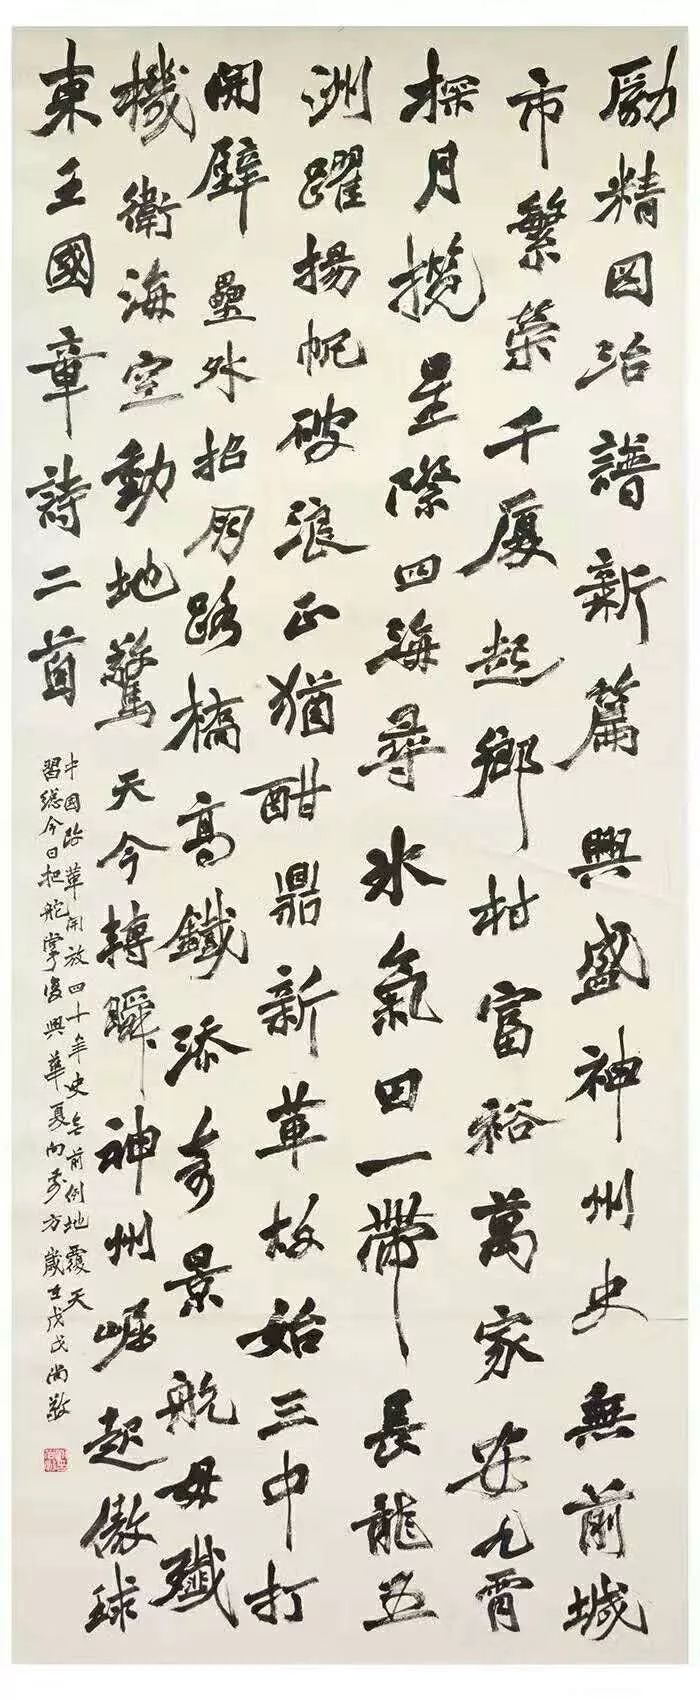 勵精圖治譜新篇興盛神州史無前城
市繁榮千厦起鄉村富裕萬家安九霄
探月攬星際四海尋冰氣田一帶長龍五
洲躍揚帆破浪正猶酣鼎新革故始三中打
開壁壘外招用路橋高鐵添奇景航母殲
機衛海空動地驚天今轉瞬神州崛起傲球
東王國章詩二首
中国改革開放四十年史無前例地覆天
習總今日把舵掌復興華夏向東方歲在戊戌尚敬